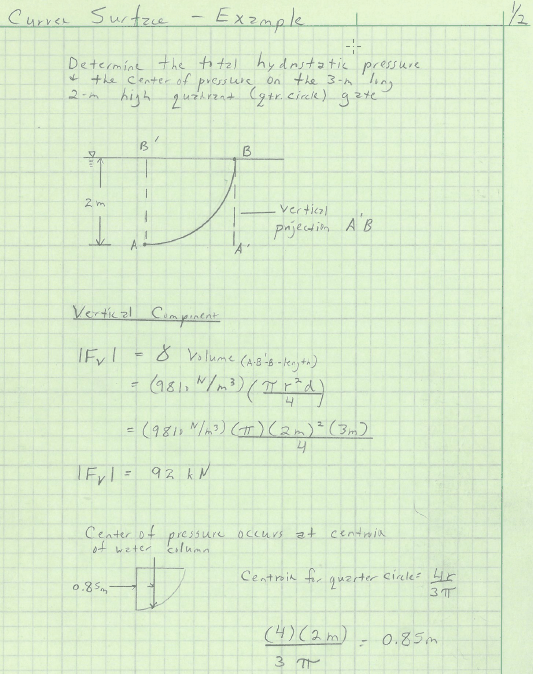 Curved Surface - Example
1/2
Determine the total hydrostatic pressure
& the center of pressure on the 3-m long
2-m high quadrant (qtr. circle) gate
B'
B
2m
A
A'
vertical
projection A'B
Vertical Component
|Fv| = γ Volume (A-B'-B-length)
= (9810 N/m³) (π r² d / 4)
= (9810 N/m³) (π)(2m)² (3m) / 4
|Fv| = 92 kN
Center of pressure occurs at centroid
of water column
0.85m
Centroid for quarter circle = 4r / 3π
(4)(2m) / 3 π = 0.85m